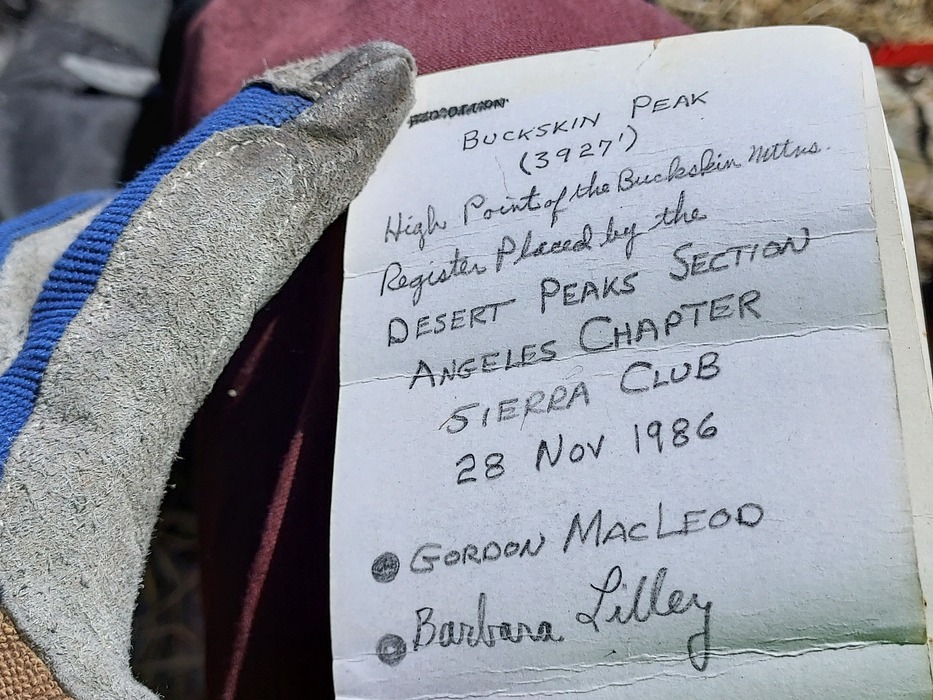 BUCKSKIN PEAK
(3927')
High Point of the Buckskin Mttns.
Register Placed by the
DESERT PEAKS SECTION
ANGELES CHAPTER
SIERRA CLUB
28 NOV 1986
GORDON MACLEOD
Barbara Lilley